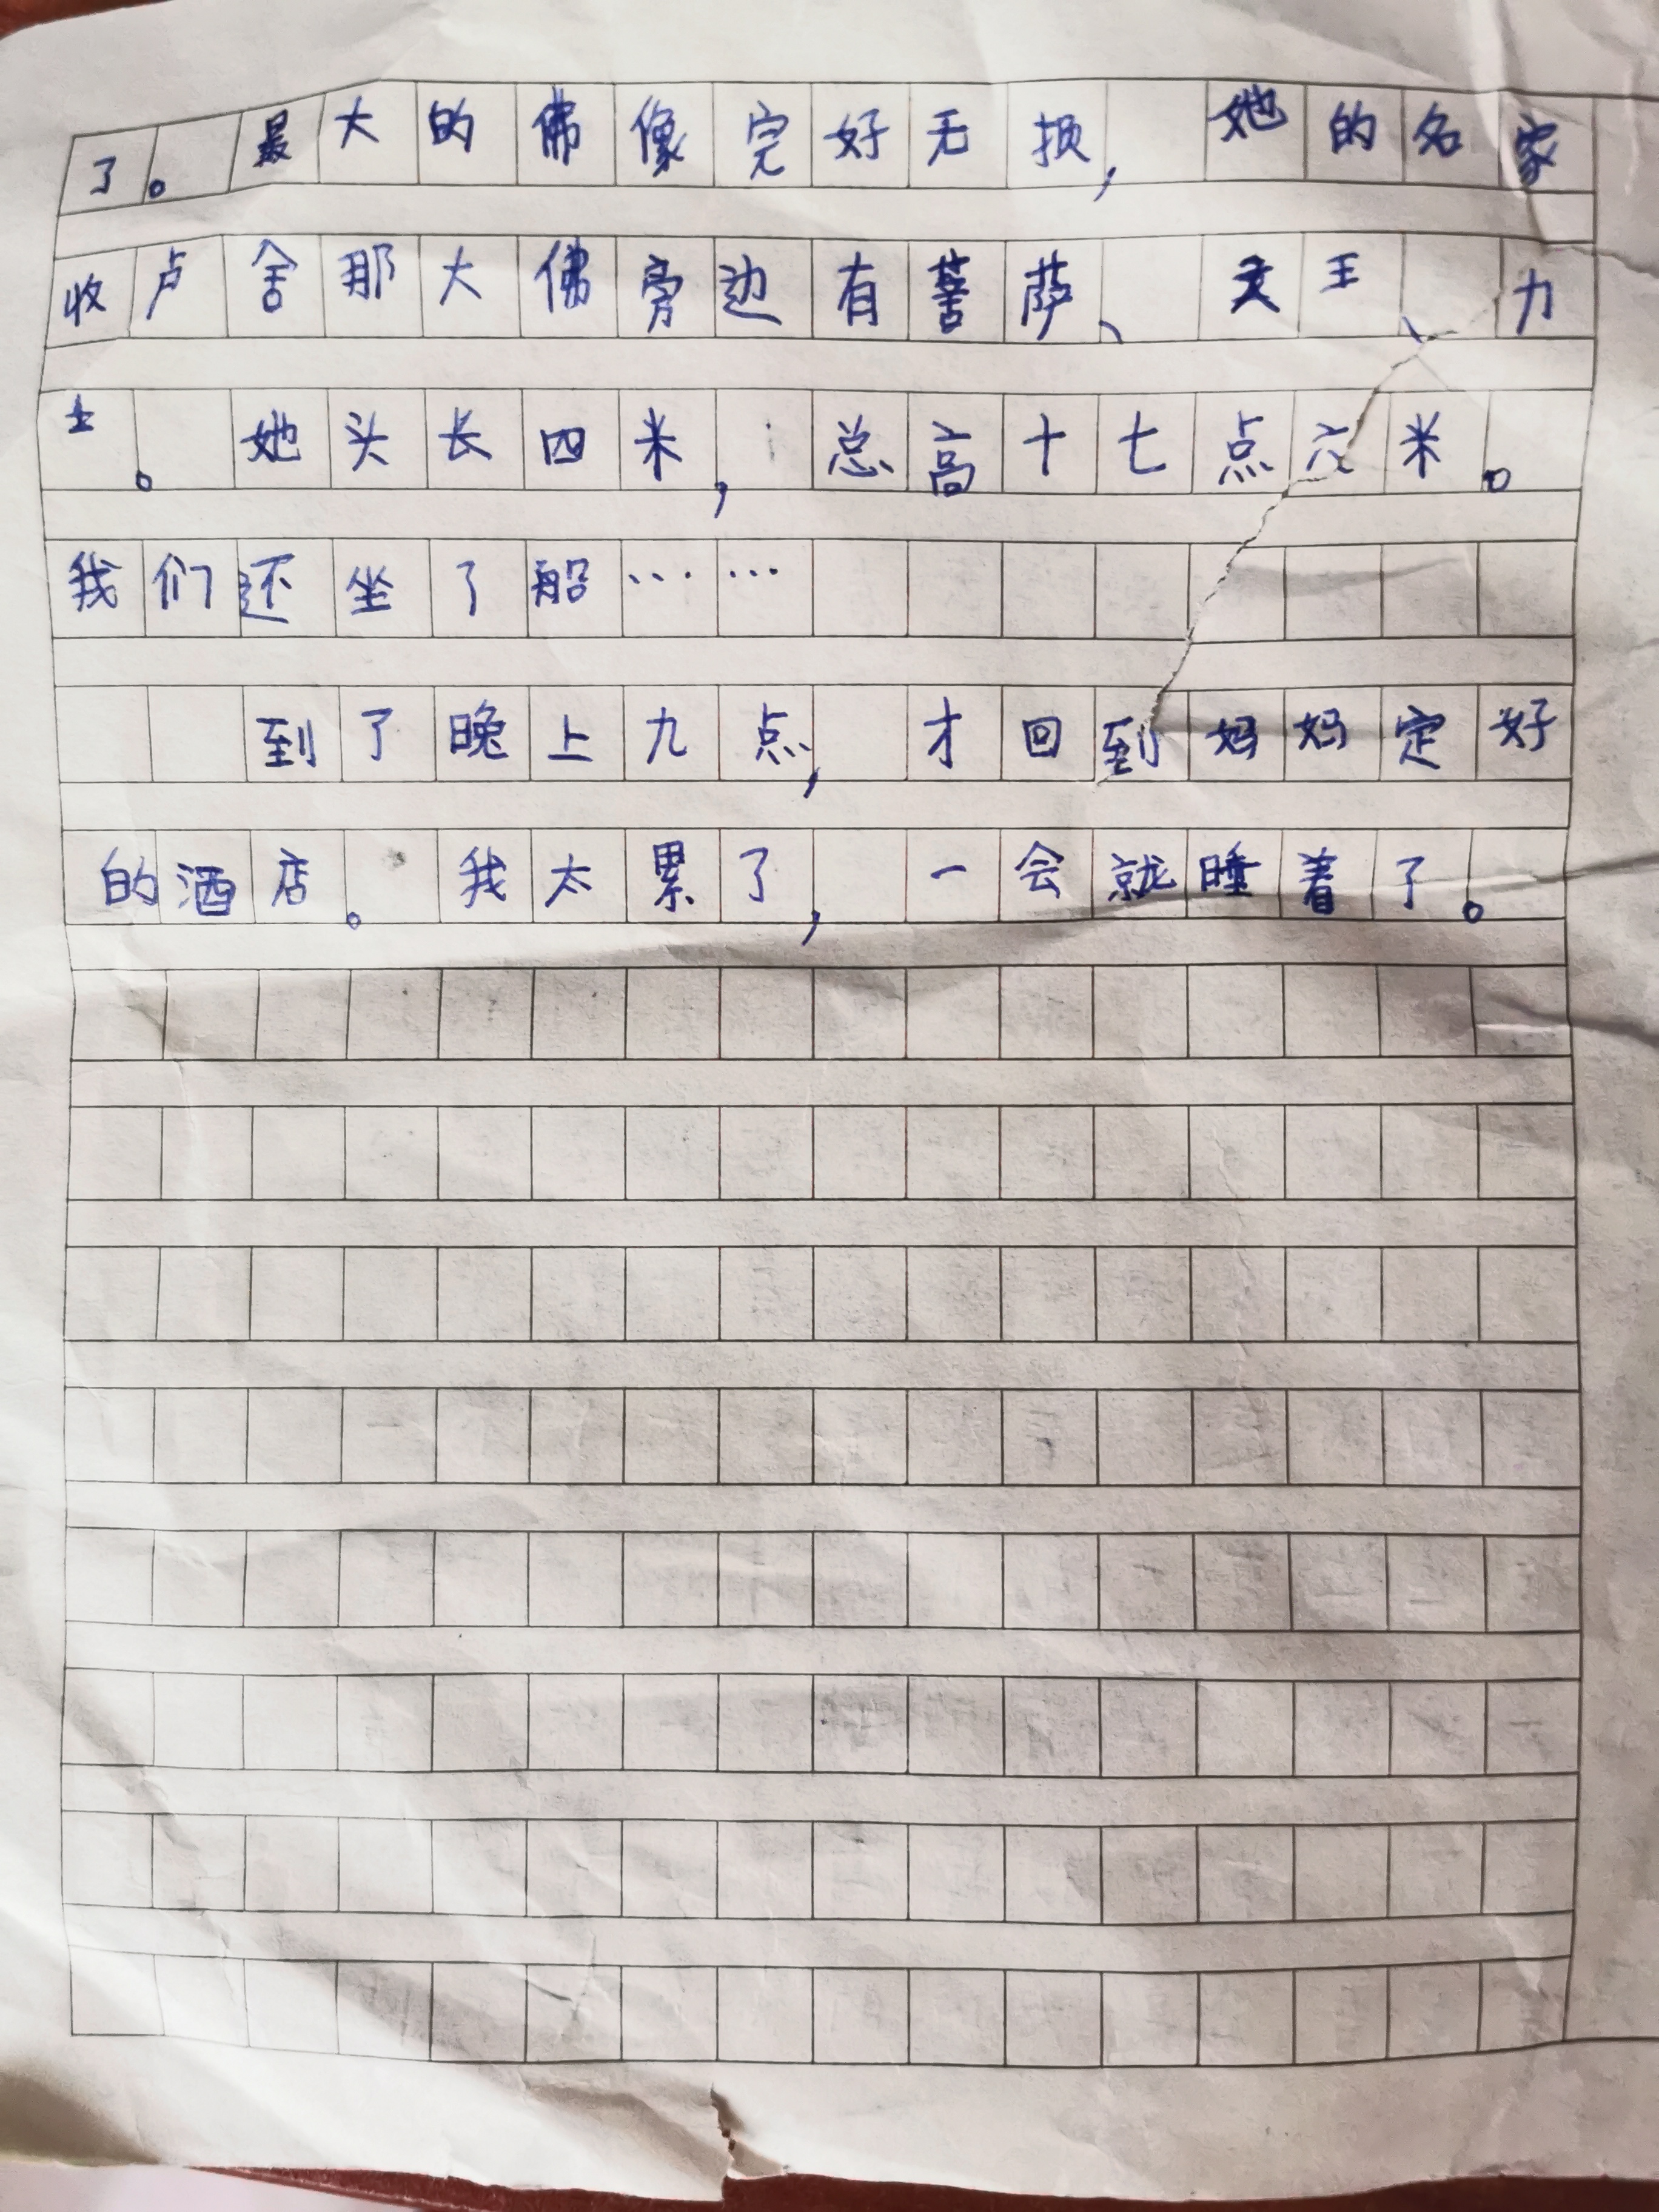 了。最大的佛像完好无损，她的名家
收卢舍那大佛旁边有菩萨、天王、力
士。她头长四米，总高十七点六米。
我们还坐了船……
到了晚上九点，才回到妈妈定好
的酒店。我太累了，一会就睡着了。